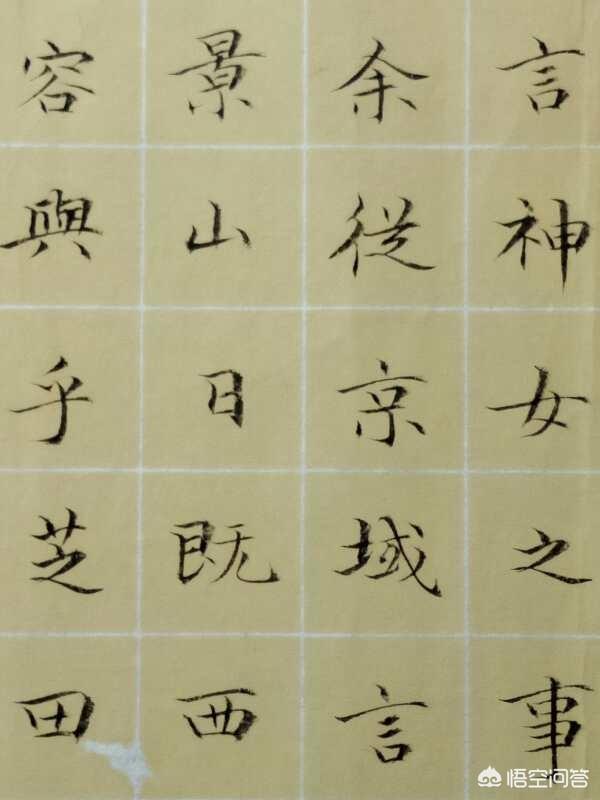 言神女之事
余從京域言
景山日既西
容與乎芝田
悟空问答